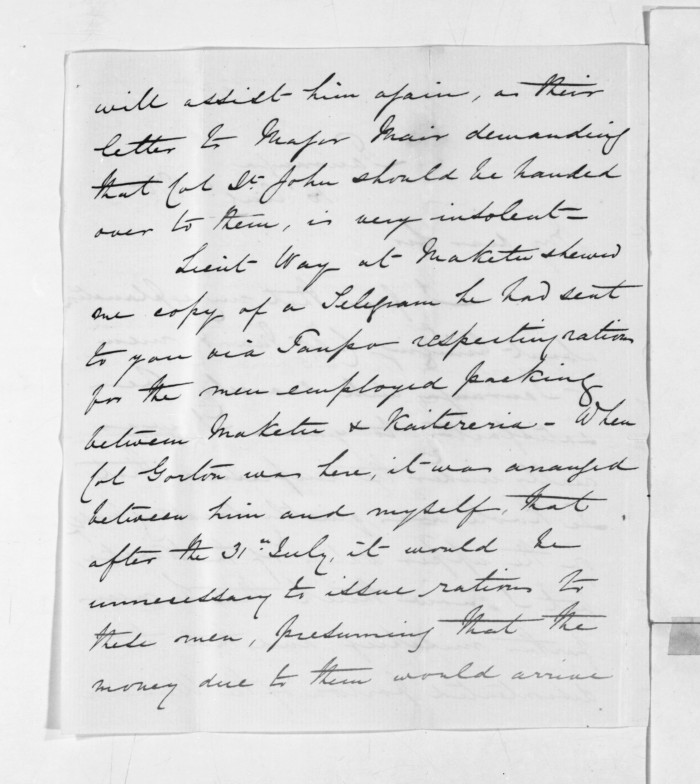 will assist him again, as their
letter to Major Mair demanding
that Col St. John should be handed
over to them, is very insolent -
Lieut Way at Maketu shewed
me copy of a Telegram he had sent
to you via Taupo respecting rations
for the men employed packing
between Maketu & Kaitereria - When
Col Gorton was here, it was arranged
between him and myself, that
after the 31st July, it would be
unnecessary to issue rations to
these men, presuming that the
money due to them would arrive